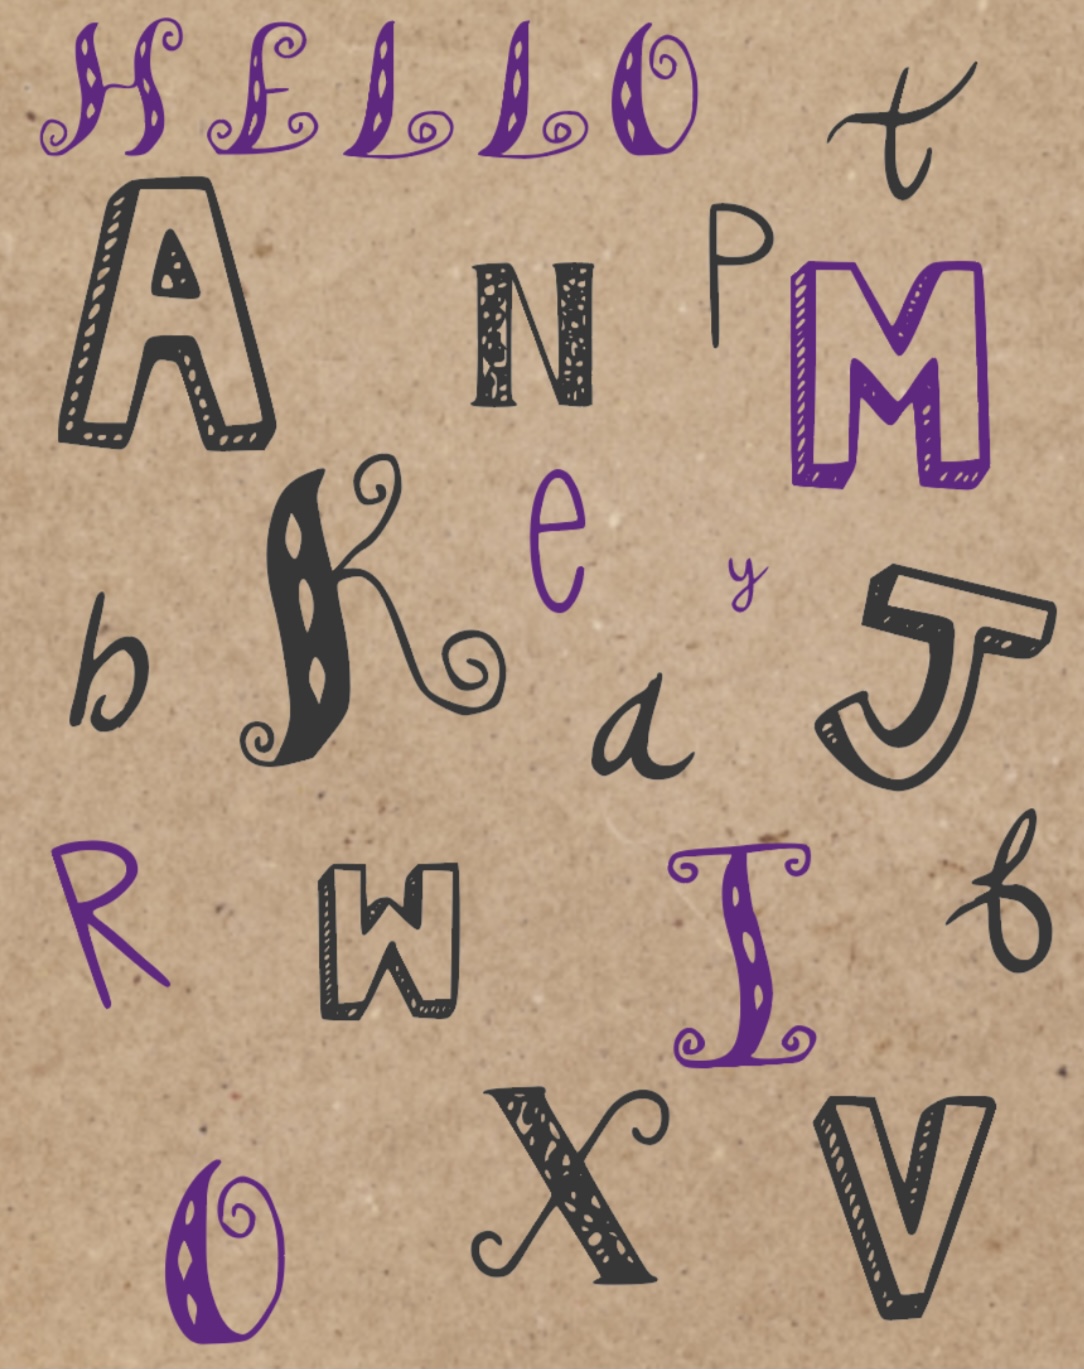 HELLO
t
A N P M
K e y J
b a
R W I b
O X V